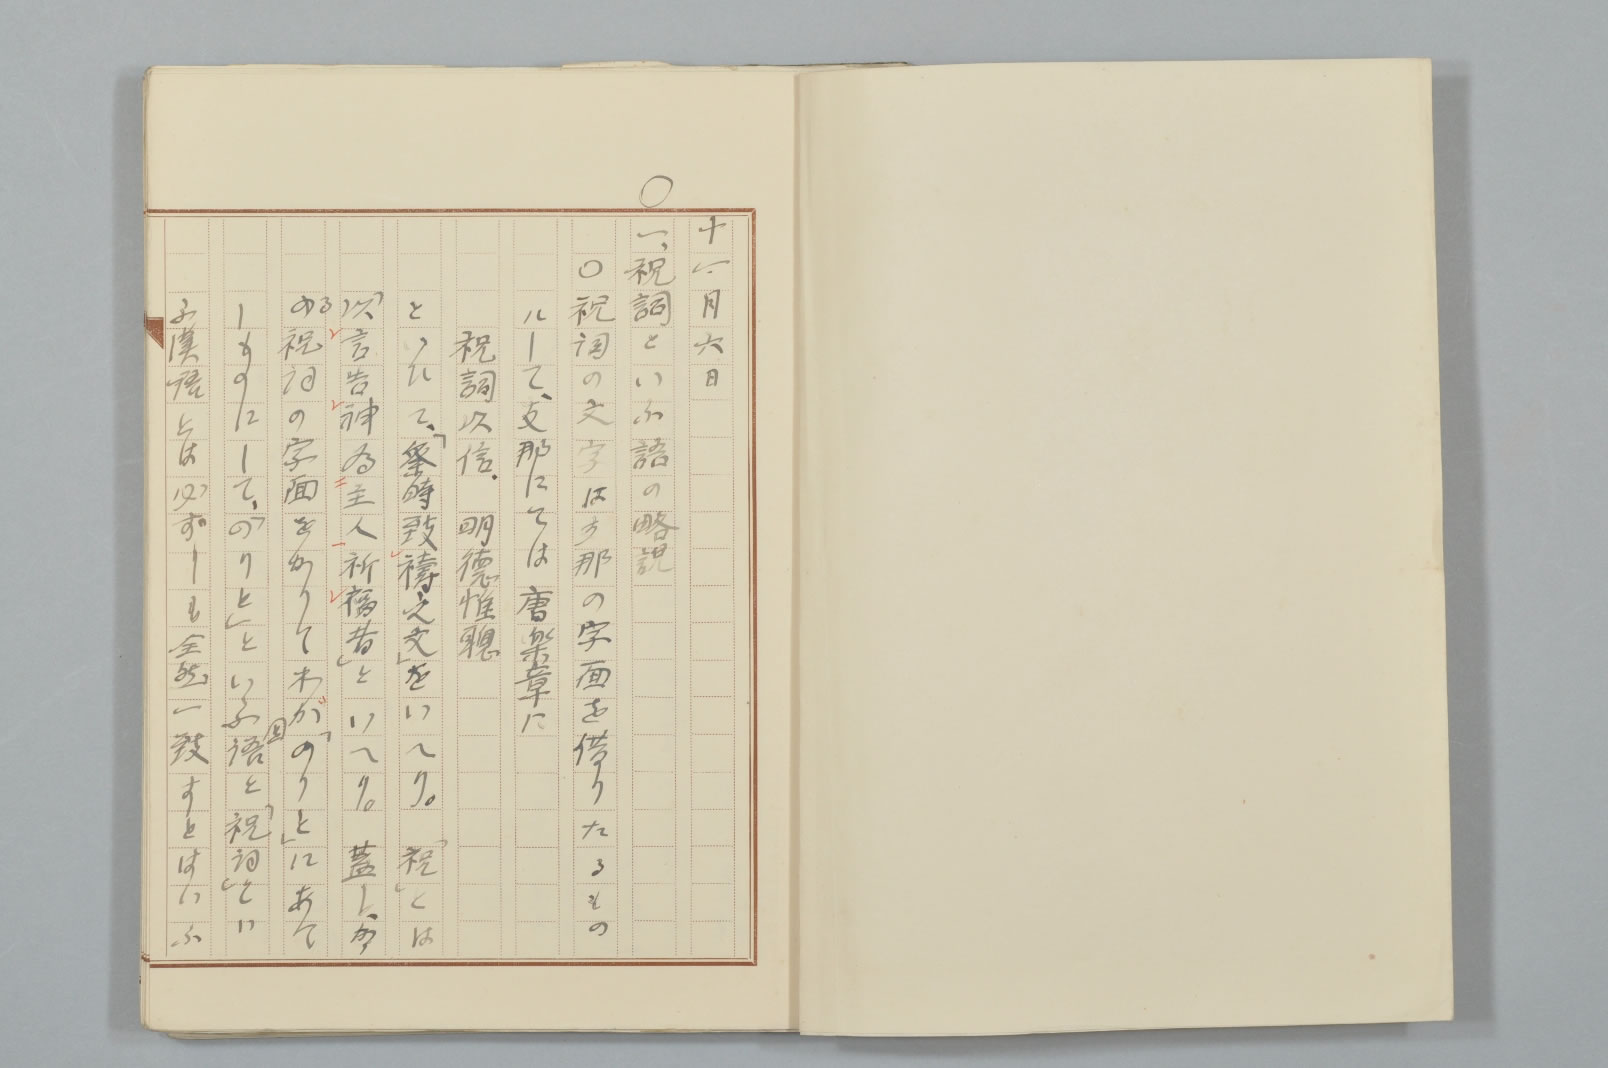 十一月六日
○一、祝詞といふ語の略説
○祝詞の文字は支那の字面を借りたるもの
にして、支那にては唐楽章に
祝詞以信、明徳惟聰
といひて、「祭時致禱之文」をいへり。「祝」とは
「以言告神為主人祈福者」といへり。蓋し、か
かる祝詞の字面をかりてわが「のりと」にあて
しものにして、「のりと」といふ国語と「祝詞」とい
ふ漢語とは必ずしも全然一致すとはいふ